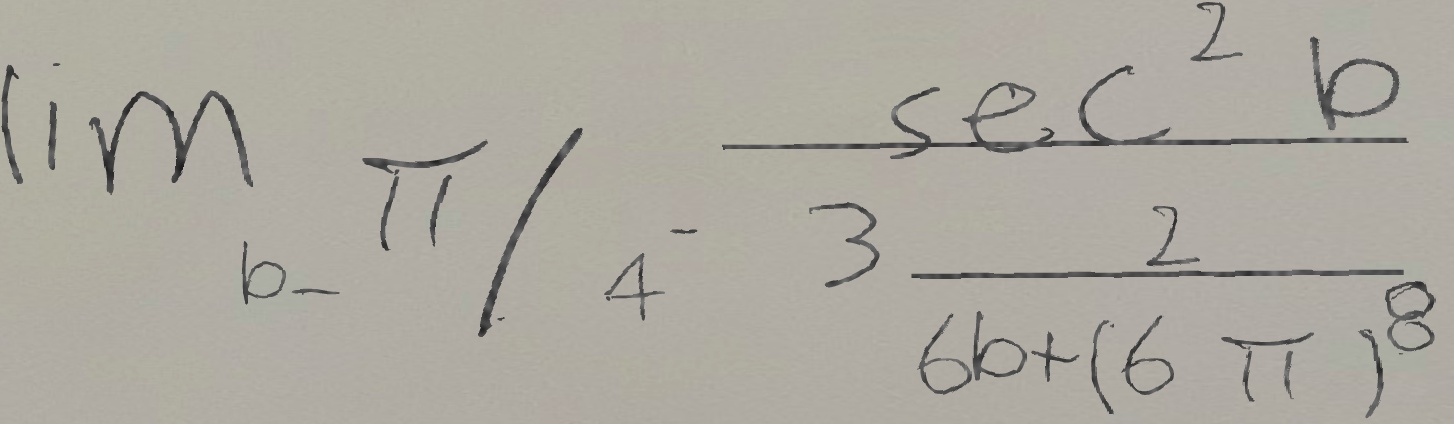 \lim_{b-\pi/4^-} \frac{\sec^2 b}{3\frac{2}{6b+(6\pi)^8}}